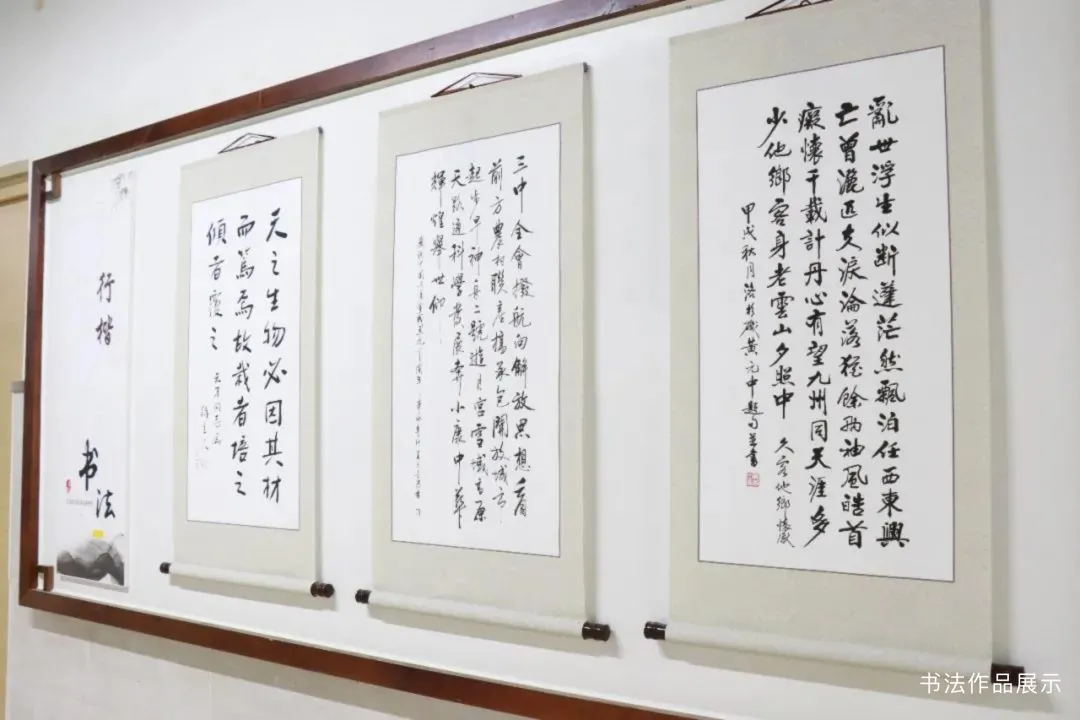 行楷
书法
天之生物必因其材
而篤焉故栽者培之
傾者覆之
三中全會撥航向解放思想看
前方農村聯產搞承包開放城市
起步早神舟二號遊月宮雪域高原
天路通科學發展奔小康中華
輝煌舉世仰
亂世浮生似斷蓬茫然飄泊任西東興
亡曾灑匹夫淚淪落猶餘兩袖風皓首
癡懷千載計丹心有望九州同天涯多
少他鄉客身老雲山夕照中 久客他鄉懷感
甲戌秋月 黃元中題句並書
书法作品展示